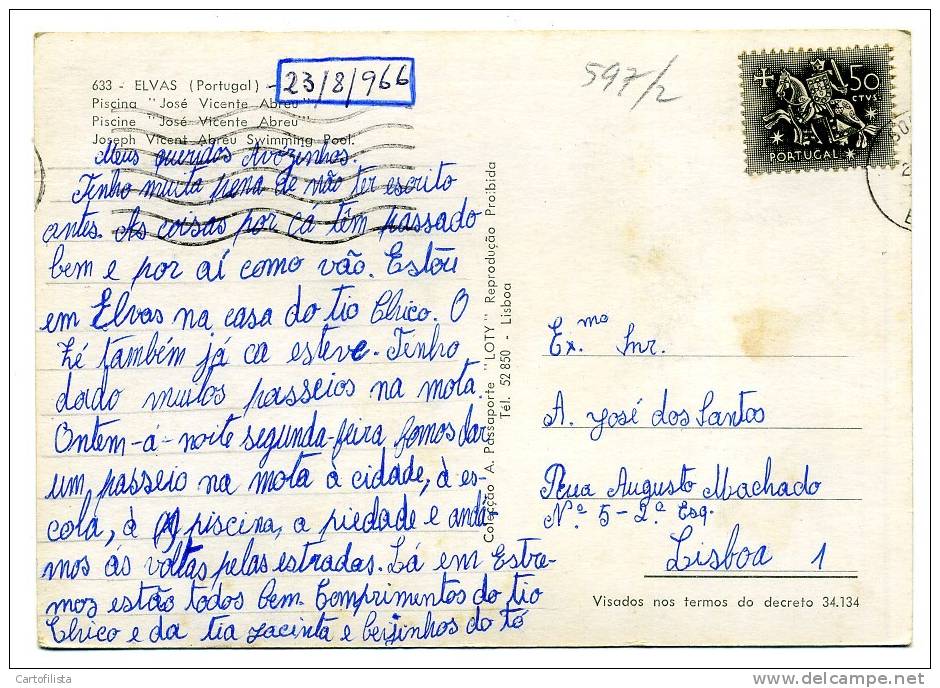 633 - ELVAS (Portugal) - 23/8/966
Piscina "José Vicente Abreu"
Piscine "José Vicente Abreu"
Joseph Vicent Abreu Swimming Pool.
Meus queridos Avózinhos.
Tenho muita pena de não ter escrito
antes. As coisas por cá têm passado
bem e por aí como vão. Estou
em Elvas na casa do tio Chico. O
Zé também já ca esteve. Tenho
dado muitos passeios na mota.
Ontem-á-noite segunda-feira fomos dar
um passeio na mota à cidade, à es-
cola, à piscina, a piedade e andá
mos ás voltas pelas estradas. Lá em Estre-
moz estão todos bem. Comprimentos do tio
Chico e da tia Jacinta e beijinhos do tó
Colecção A. Passaporte "LOTY" Reprodução Proibida
Tél. 52 850 - Lisboa
597/2
50
CTVS
PORTUGAL
Ex.mo Snr.
A. José dos Santos
Rua Augusto Machado
Nº 5-2º Esq.
Lisboa 1
Visados nos termos do decreto 34.134
Cartofilista
www.delcampe.net